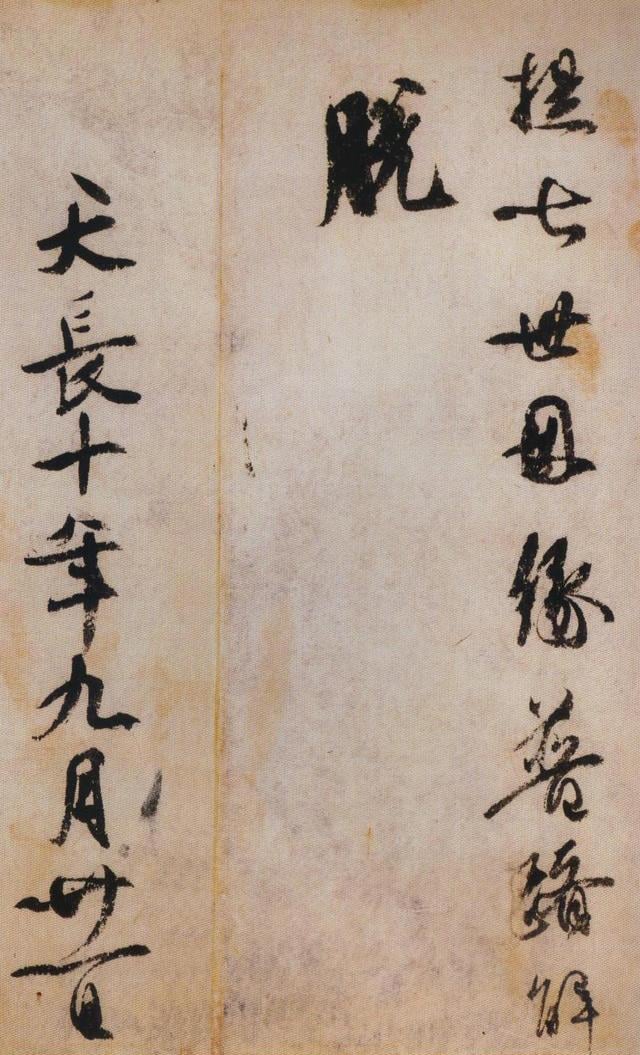 提七世因縁普躋解
脱
天長十年九月廿一日